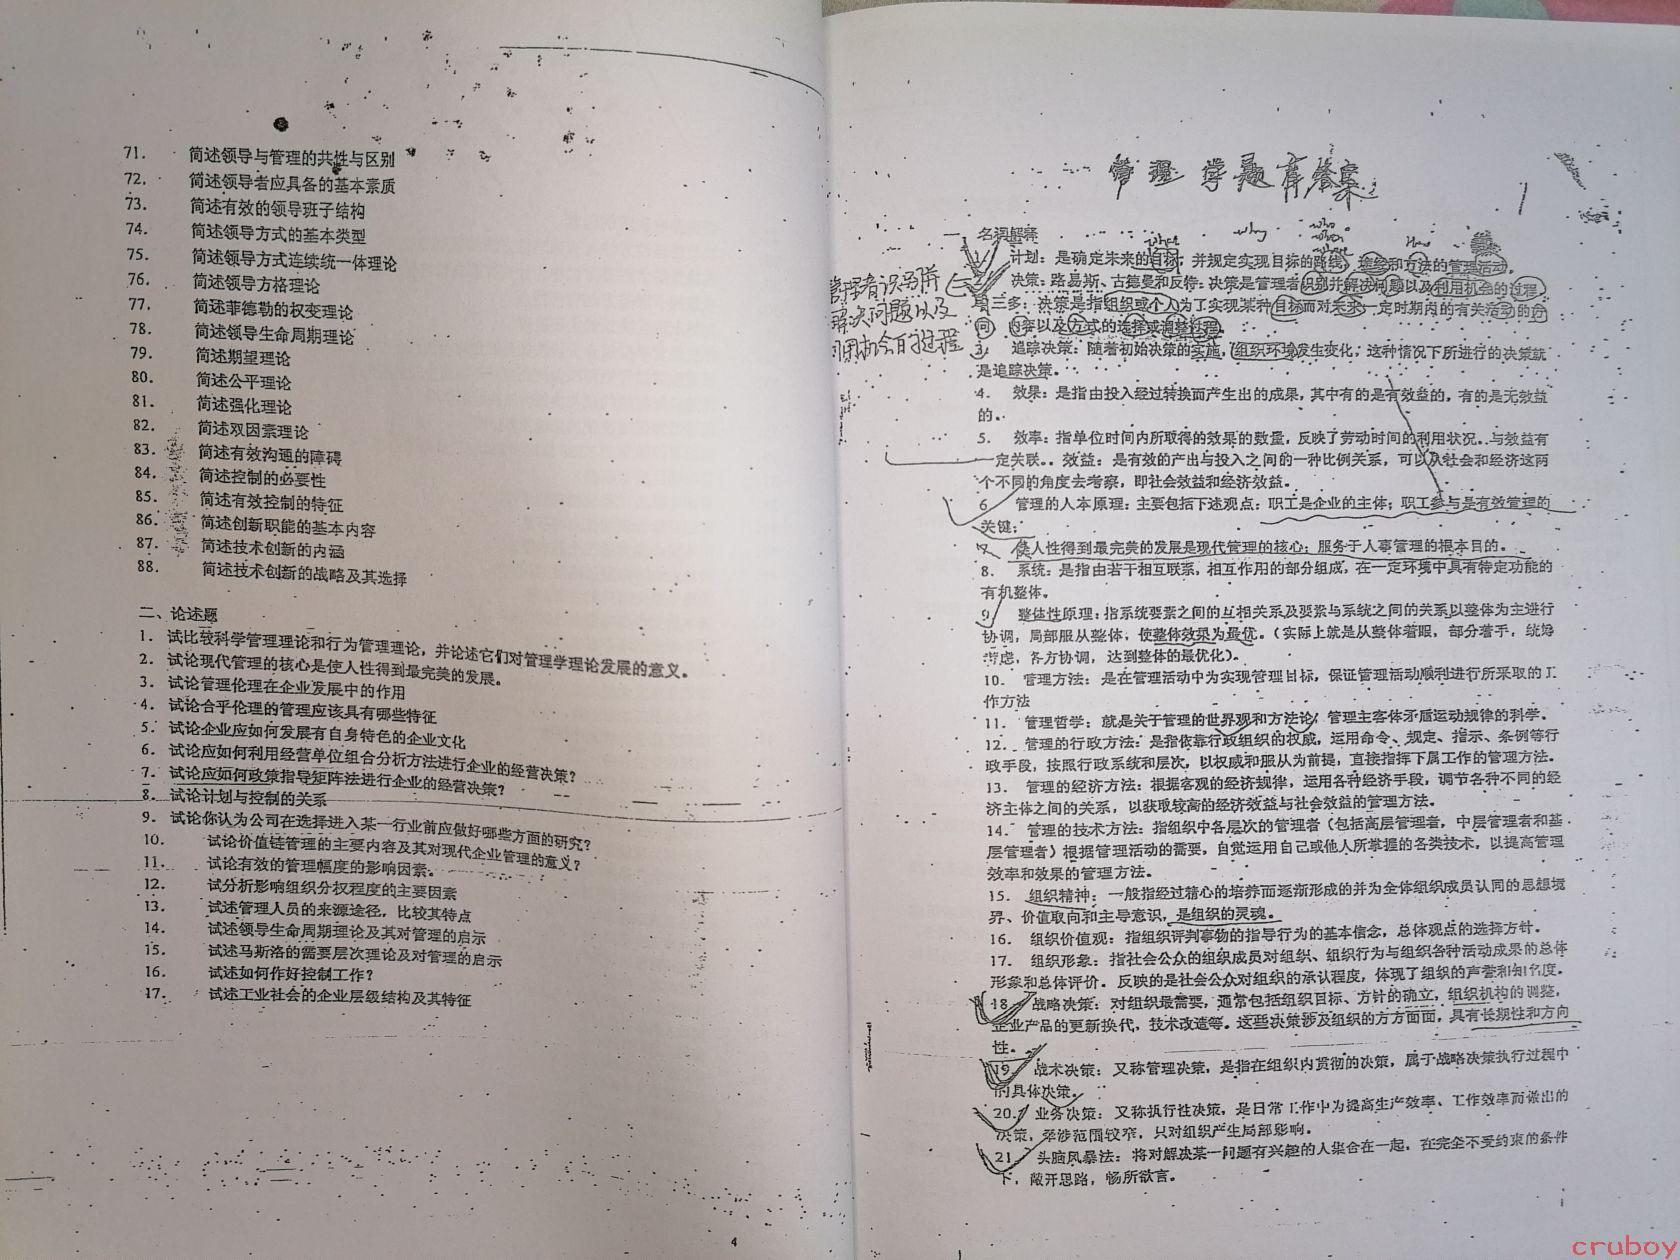 71. 简述领导与管理的共性与区别
72. 简述领导者应具备的基本素质
73. 简述有效的领导班子结构
74. 简述领导方式的基本类型
75. 简述领导方式连续统一体理论
76. 简述领导方格理论
77. 简述菲德勒的权变理论
78. 简述领导生命周期理论
79. 简述期望理论
80. 简述公平理论
81. 简述强化理论
82. 简述双因素理论
83. 简述有效沟通的障碍
84. 简述控制的必要性
85. 简述有效控制的特征
86. 简述创新职能的基本内容
87. 简述技术创新的内涵
88. 简述技术创新的战略及其选择
二、论述题
1. 试比较科学管理理论和行为管理理论，并论述它们对管理学理论发展的意义。
2. 试论现代管理的核心是使人性得到最完美的发展。
3. 试论管理伦理在企业发展中的作用
4. 试论合乎伦理的管理应该具有哪些特征
5. 试论企业应如何发展有自身特色的企业文化
6. 试论应如何利用经营单位组合分析方法进行企业的经营决策？
7. 试论应如何政策指导矩阵法进行企业的经营决策？
8. 试论计划与控制的关系
9. 试论你认为公司在选择进入某一行业前应做好哪些方面的研究？
10. 试论价值链管理的主要内容及其对现代企业管理的意义？
11. 试论有效的管理幅度的影响因素。
12. 试分析影响组织分权程度的主要因素
13. 试述管理人员的来源途径，比较其特点
14. 试述领导生命周期理论及其对管理的启示
15. 试述马斯洛的需要层次理论及对管理的启示
16. 试述如何作好控制工作？
17. 试述工业社会的企业层级结构及其特征
4
管理学题库答案
一、名词解释
what why who when where How
1. 计划：是确定未来的目标，并规定实现目标的路线、途经和方法的管理活动。
2. 决策：路易斯、古德曼和反特：决策是管理者识别并解决问题以及利用机会的过程
周三多：决策是指组织或个人为了实现某种目标而对未来一定时期内的有关活动的方
向、内容以及方式的选择或调整过程。
管理者识别并
解决问题以及
利用机会的过程
3. 追踪决策：随着初始决策的实施，组织环境发生变化，这种情况下所进行的决策就
是追踪决策。
4. 效果：是指由投入经过转换而产生出的成果，其中有的是有效益的，有的是无效益
的。
5. 效率：指单位时间内所取得的效果的数量，反映了劳动时间的利用状况。与效益有
一定关联。效益：是有效的产出与投入之间的一种比例关系，可以从社会和经济这两
个不同的角度去考察，即社会效益和经济效益。
6. 管理的人本原理：主要包括下述观点：职工是企业的主体；职工参与是有效管理的
关键；
7. 使人性得到最完美的发展是现代管理的核心；服务于人事管理的根本目的。
8. 系统：是指由若干相互联系，相互作用的部分组成，在一定环境中具有特定功能的
有机整体。
9. 整体性原理：指系统要素之间的互相关系及要素与系统之间的关系以整体为主进行
协调，局部服从整体，使整体效果为最优。（实际上就是从整体着眼，部分着手，统筹
考虑，各方协调，达到整体的最优化）。
10. 管理方法：是在管理活动中为实现管理目标，保证管理活动顺利进行所采取的工
作方法
11. 管理哲学：就是关于管理的世界观和方法论，管理主客体矛盾运动规律的科学。
12. 管理的行政方法：是指依靠行政组织的权威，运用命令、规定、指示、条例等行
政手段，按照行政系统和层次，以权威和服从为前提，直接指挥下属工作的管理方法。
13. 管理的经济方法：根据客观的经济规律，运用各种经济手段，调节各种不同的经
济主体之间的关系，以获取较高的经济效益与社会效益的管理方法。
14. 管理的技术方法：指组织中各层次的管理者（包括高层管理者，中层管理者和基
层管理者）根据管理活动的需要，自觉运用自己或他人所掌握的各类技术，以提高管理
效率和效果的管理方法。
15. 组织精神：一般指经过精心的培养而逐渐形成的并为全体组织成员认同的思想境
界、价值取向和主导意识，是组织的灵魂。
16. 组织价值观：指组织评判事物的指导行为的基本信念，总体观点的选择方针。
17. 组织形象：指社会公众的组织成员对组织、组织行为与组织各种活动成果的总体
形象和总体评价。反映的是社会公众对组织的承认程度，体现了组织的声誉和知名度。
18. 战略决策：对组织最需要，通常包括组织目标、方针的确立，组织机构的调整，
企业产品的更新换代，技术改造等。这些决策涉及组织的方方面面，具有长期性和方向
性。
19. 战术决策：又称管理决策，是指在组织内贯彻的决策，属于战略决策执行过程中
的具体决策。
20. 业务决策：又称执行性决策，是日常工作中为提高生产效率、工作效率而做出的
决策，牵涉范围较窄，只对组织产生局部影响。
21. 头脑风暴法：将对解决某一问题有兴趣的人集合在一起，在完全不受约束的条件
下，敞开思路，畅所欲言。
cruboy